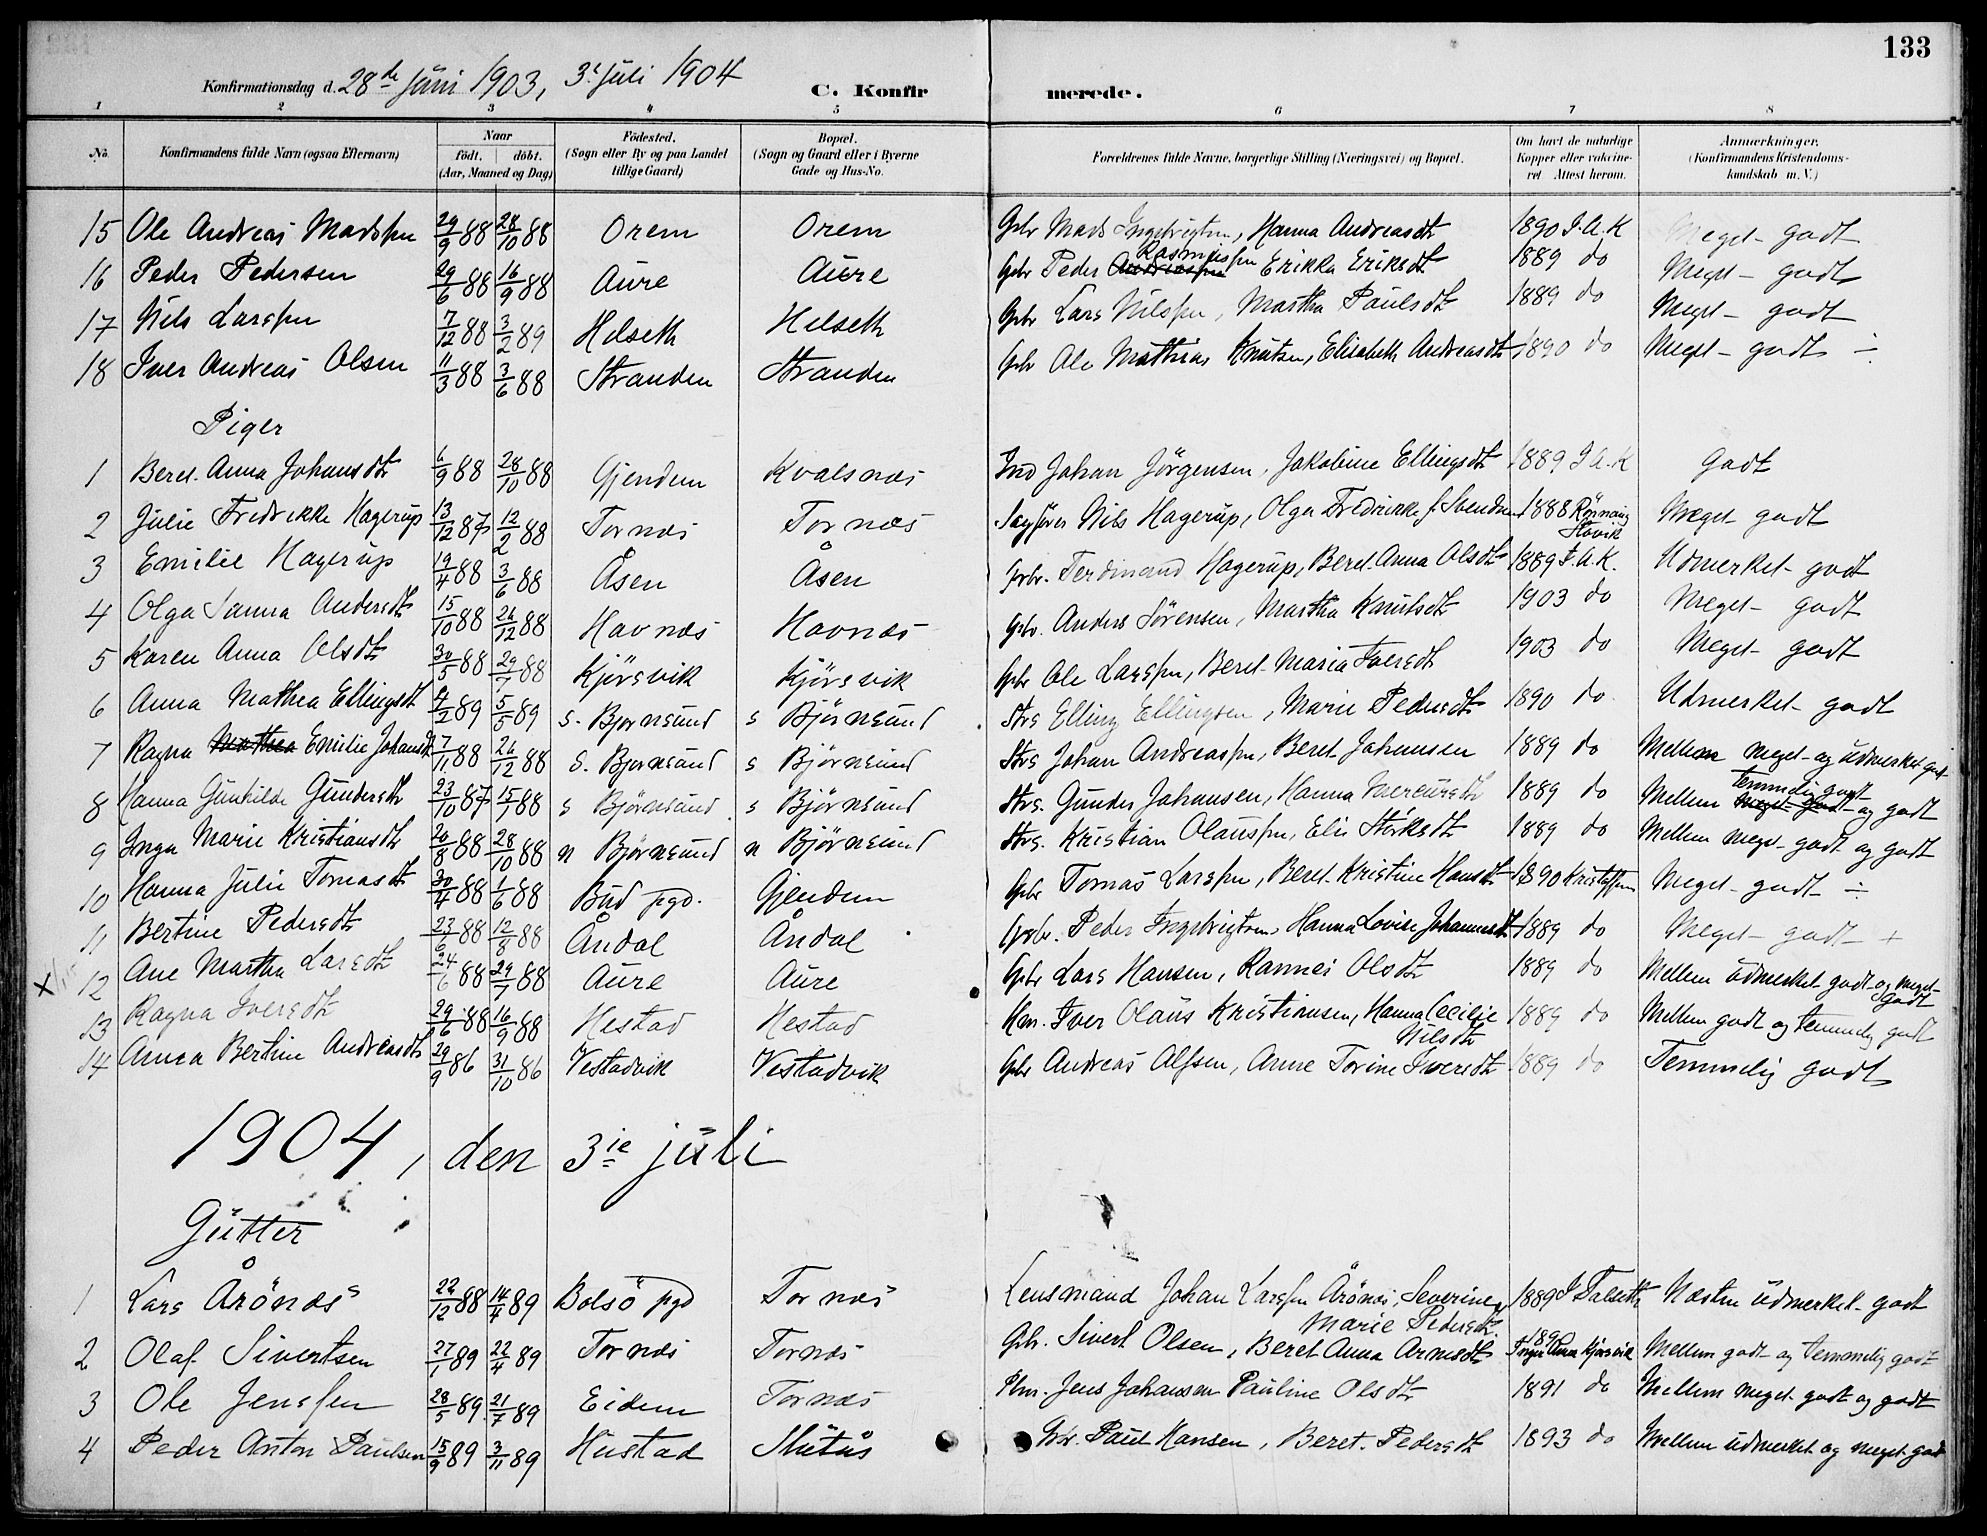 133
Konfirmationsdag d. 28de Juni 1903, 3. juli 1904 C. Konfirmerede.
1 2 3 4 5 6 7 8
No. Konfirmandens fulde Navn (ogsaa Efternavn) Naar födt. döbt. (Aar, Maaned og Dag) Födested. (Sogn eller By og paa Landet tillige Gaard) Bopæl. (Sogn og Gaard eller i Byerne Gade og Hus-No. Forældrenes fulde Navne, borgerlige Stilling (Næringsvei) og Bopæl. Om havt de naturlige Kopper eller vaccineret Attest herom. Anmærkninger. (Konfirmandens Kristendomskundskab m. V.)
15 Ole Andreas Madssen 29/9 88 28/10 88 Orem Orem Gbr Mads Ingebrigtsen, Hanna Andreasdtr 1890 I.A.K Meget godt
16 Peder Pedersen 29/6 88 16/9 88 Aure Aure Gbr Peder Andreassen Rasmussen Erikka Eriksdtr 1889 do Meget godt
17 Nils Larssen 7/12 88 3/2 89 Helseth Helseth Gbr Lars Nilssen, Martha Paulsdtr 1889 do Meget godt
18 Iver Andreas Olsen 11/3 88 3/6 88 Stranden Stranden Gbr Ole Mathias Knutsen, Elisabeth Andreasdtr 1890 do Meget godt ÷
Piger
1 Beret Anna Johansdtr 6/9 88 28/10 88 Gjendem Kvalsnæs Ind Johan Jörgensen, Jakobine Ellingsdtr 1889 I.A.K Godt
2 Julie Fredrikke Hagerup 13/12 87 12/2 88 Tornæs Tornæs Sagförer Nils Hagerup, Olga Fredrikke f. Svendsen 1888 Rönnaug Hovik Meget godt
3 Emilie Hagerup 19/4 88 3/6 88 Åsen Åsen Gbr. Ferdinand Hagerup, Beret Anna Olsdtr 1889 I.A.K. Udmerket godt
4 Olga Sanna Andersdtr 15/10 88 26/12 88 Havnæs Havnæs Gbr. Anders Sörensen, Martha Knutsdtr 1903 do Meget godt
5 Karen Anna Olsdtr 30/5 88 29/7 88 Kjörsvik Kjörsvik Gbr Ole Larssen, Beret Maria Iversdtr 1903 do Meget godt
6 Anna Mathea Ellingsdtr 4/2 89 5/5 89 s. Björnsund s Björnsund Strs Elling Ellingsen, Marie Pedersdtr 1890 do Udmerket godt
7 Ragna Mathea Emilie Johansdtr 7/11 88 26/12 88 s. Björnsund s Björnsund Strs Johan Andreassen, Beret Johansen 1889 do Mellem meget og udmerket godt
8 Hanna Gunhilde Gundersdtr 23/10 87 15/1 88 s Björnsund s Björnsund Strs. Gunder Johansen, Hanna Mercursdtr 1889 do Mellem meget godt temmelig godt og godt
9 Inga Marie Kristiansdtr 20/8 88 28/10 88 n Björnsund n Björnsund Strs. Kristian Olaussen, Elis Störksdtr 1889 do Mellem meget godt og godt
10 Hanna Julie Tomasdtr 30/4 88 1/6 88 Bud pgd. Gjendem Gbr Tomas Larssen, Beret Kristine Hansdtr 1890 Kristoffersen Meget godt ÷
11 Bertine Pedersdtr 23/6 88 12/8 88 Åndal Åndal Gbr. Peder Ingebrigtsen, Hanna Lovise Johannesdtr 1889 do Meget godt +
x 12 Ane Martha Larsdtr 24/6 88 29/7 88 Aure Aure Gbr Lars Hansen, Rannei Olsdtr 1889 do Mellem udmerket godt og meget godt
13 Ragna Iversdtr 29/6 88 16/9 88 Hestad Hestad Km. Iver Olaus Kristiansen, Hanna Cecilie Nilsdtr 1889 do Mellem godt og temmelig godt
14 Anna Bertine Andreasdtr 29/9 86 31/10 86 Vestadvik Vestadvik Gbr Andreas Alfsen, Anne Torine Iversdtr 1889 do Temmelig godt
1904, den 3ie juli
Gutter
1 Lars Årönæs 22/12 88 14/4 89 Bolsö pgd Tornæs Lensmand Johan Larssen Årönæs, Severine Marie Pedersdtr. 1889 I Talseth Næsten udmerket godt
2 Olaf Sivertsen 27/1 89 22/4 89 Tornæs Tornæs Gbr. Sivert Olsen, Beret Anna Arnesdtr 1890 Anna Kjörsvik Mellem godt og temmelig godt
3 Ole Jenssen 28/5 89 21/7 89 Eidem Tornæs Plm. Jens Johansen Pauline Olsdtr 1891 do Mellem meget godt og godt
4 Peder Anton Paulsen 15/9 89 3/11 89 Hustad Stutås Gbr. Paul Hansen, Beret Pedersdtr 1893 do Mellem udmerket og meget godt